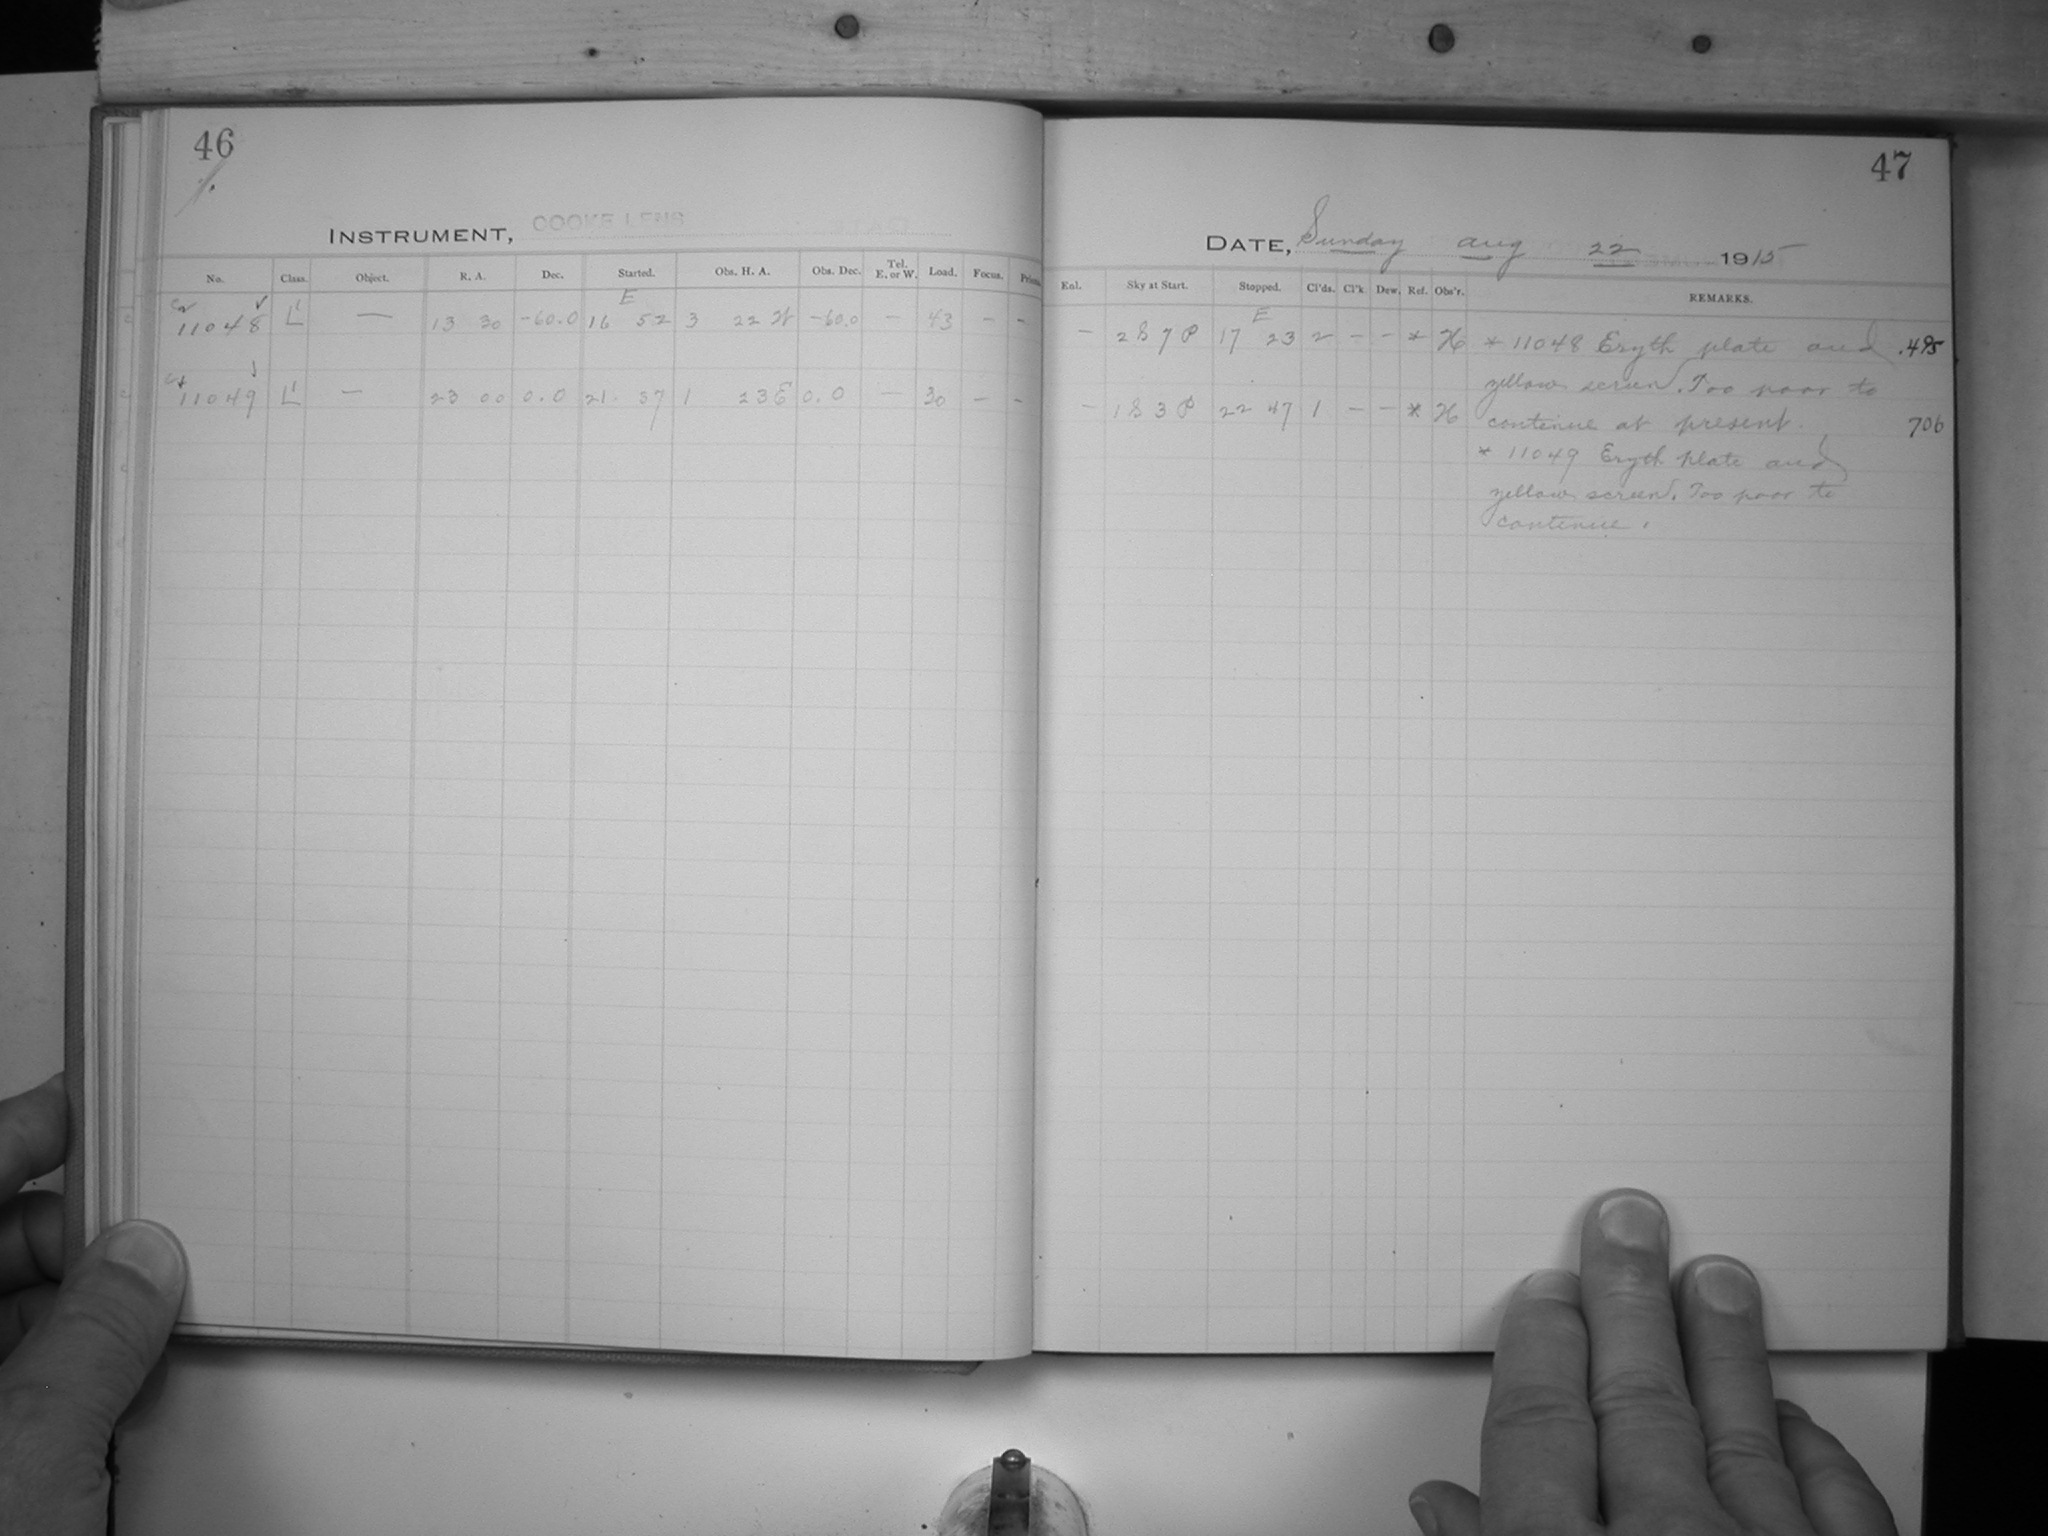 46
INSTRUMENT, COOKE LENS
No. Class. Object. R. A. Dec. Started. Obs. H. A. Obs. Dec. Tel. E. or W. Load. Focus.
E
11048 L' — 13 30 -60.0 16 52 3 22 W -60.0 — 43 - -
11049 L' — 23 00 0.0 21. 37 1 23 E 0.0 — 30 - -
47
DATE, Sunday Aug 22 1915
Enl. Sky at Start. Stopped. Cl'ds. Cl'k Dew. Ref. Obs'r. REMARKS.
E
— 2 S 7 P 17 23 2 - - * H * 11048 Eryth plate and .495
yellow screen. Too poor to
— 1 S 3 P 22 47 1 - - * H continue at present. 706
* 11049 Eryth plate and
yellow screen. Too poor to
continue.